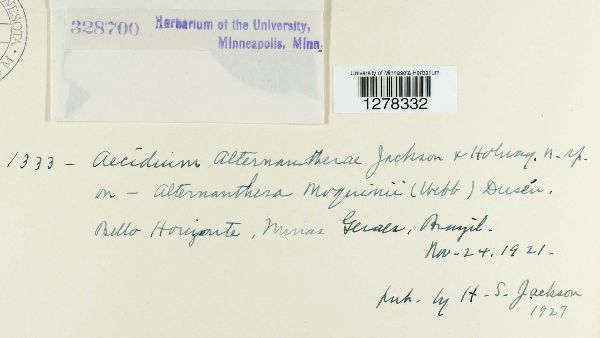 NNESOTA · M
328700
Herbarium of the University,
Minneapolis, Minn.
University of Minnesota Herbarium
1278332
1333 - Aecidium Alternantherae Jackson & Holway. n. sp.
on - Alternanthera Moquinii (Webb) Dusén.
Bello Horizonte, Minas Geraes, Brazil.
Nov. 24. 1921.
pub. by H. S. Jackson
1927